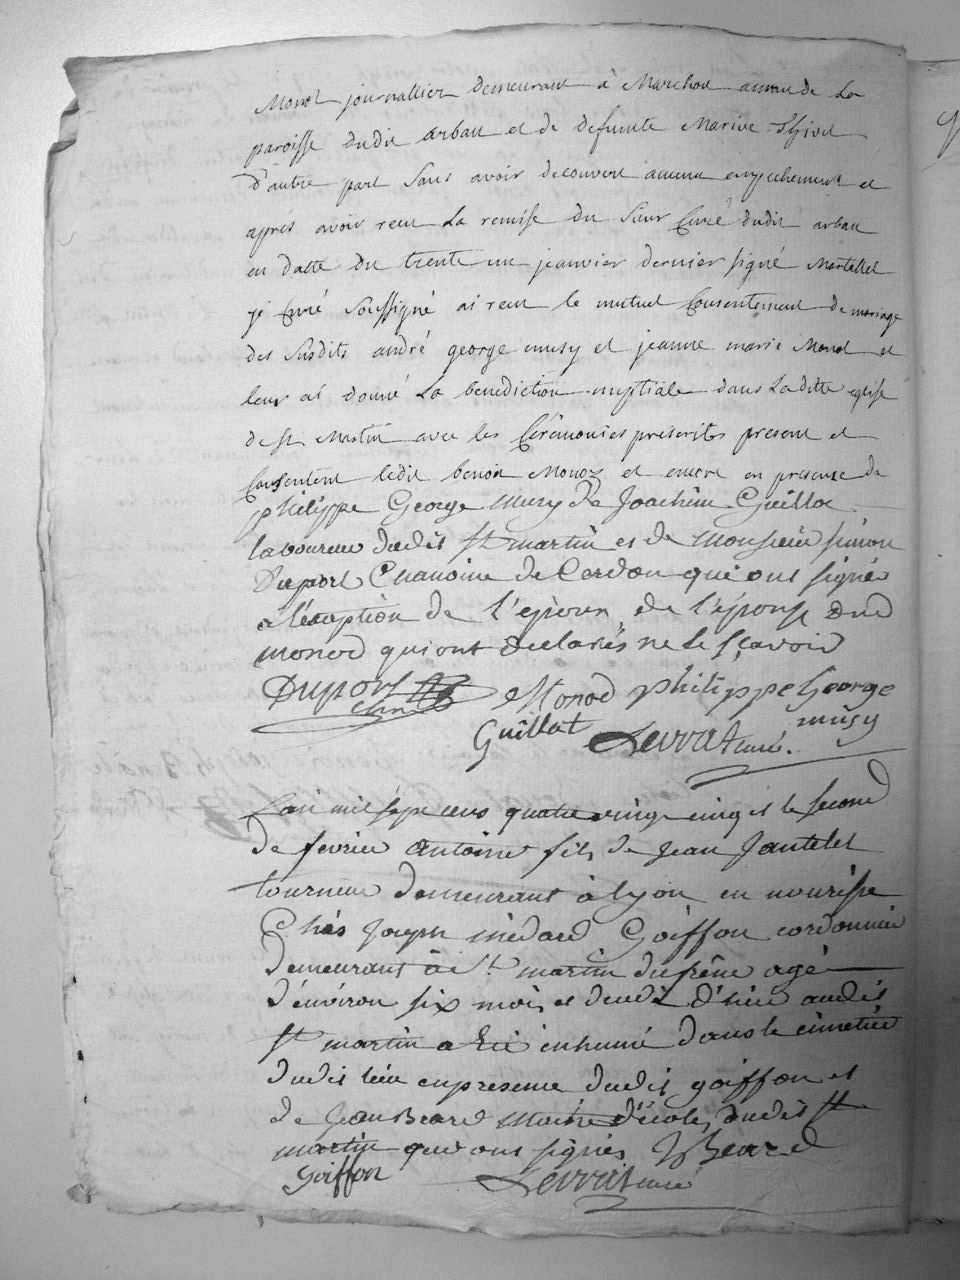 Monod journallier demeurant à Marchou annexe de La
paroisse dudit arbau et de defunte Marie
d'autre part Sans avoir decouvert aucun empechement et
aprés avoir recu La remise du Sieur Curé dudit arbau
en datte du trente un jeanvier dernier signé Martellet
je Curé Soussigné ai recu le mutuel Consentement de mariage
des Susdits andré george musy et jeanne marie Monod et
leur ai donné La benediction nuptiale dans La ditte eglise
de St Martin avec les Cérémonies prescrites présent et
Consentent ledit benoit Monoz et encore en presence de
philippe George musy de Joachim Guillot
laboureur dudit St martin et de Monsieur simon
Duport Chanoine de Cordon qui ont signé
a l'éxception de l'époux, de l'épouse dud
monod qui ont declarés ne le sçavoir
Duport chne Monod philippe George
musy
Guillat Levrat curé.
L'an mil sept cens quatre vingt cinq et le second
de fevrier antoine fils de Jean Jantelet
tourneur demeurant à lyon en nourisse
Chés Joseph médard Goiffon cordonnier
demeurant à St martin du frêne agé
d'environ six mois et decedé d'hier audit
St martin a Eté inhumé dans le cimetiére
dudit lieu en presence dudit goiffon et
de Jean Beard Maitre d'école, dudit St
martin qui ont signés JBeard
Goiffon Levrat curé